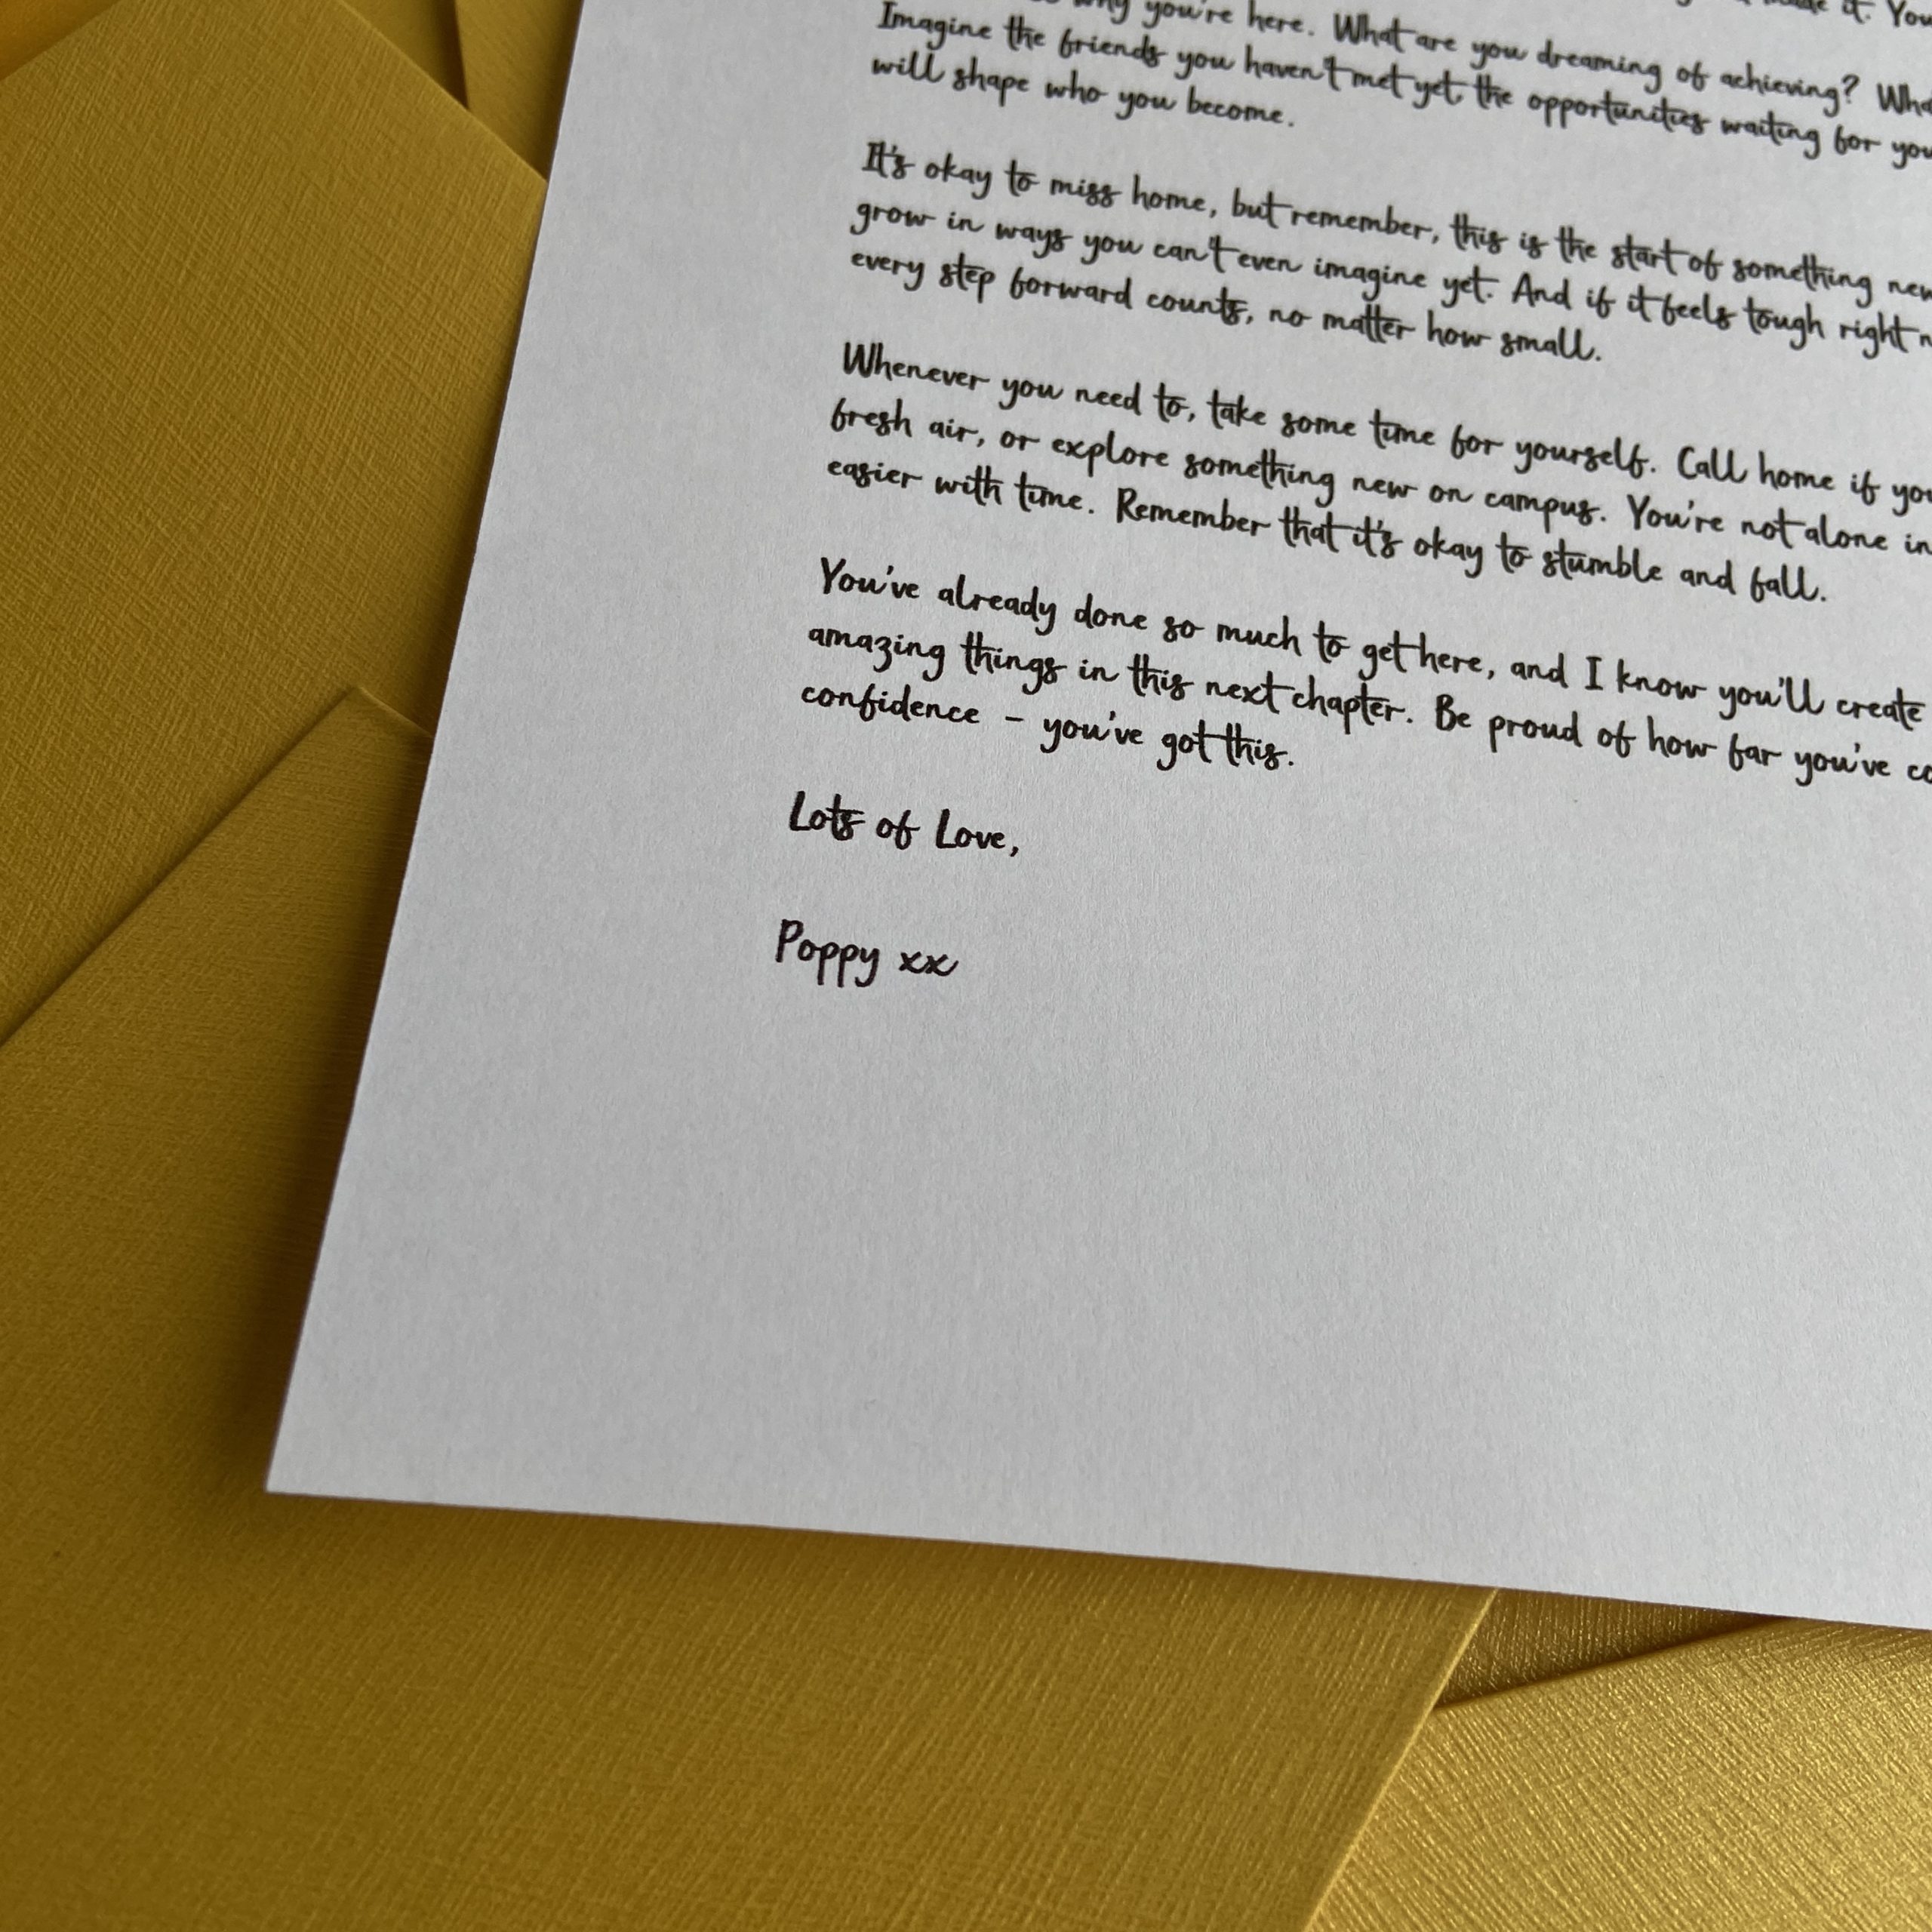 why you're here. What are you dreaming of achieving?
Imagine the friends you haven't met yet, the opportunities waiting for
will shape who you become.
It's okay to miss home, but remember, this is the start of something
grow in ways you can't even imagine yet. And if it feels tough right
every step forward counts, no matter how small.
Whenever you need to, take some time for yourself. Call home if
fresh air, or explore something new on campus. You're not alone in
easier with time. Remember that it's okay to stumble and fall.
You've already done so much to get here, and I know you'll create
amazing things in this next chapter. Be proud of how far you've
confidence – you've got this.
Lots of Love,
Poppy xx